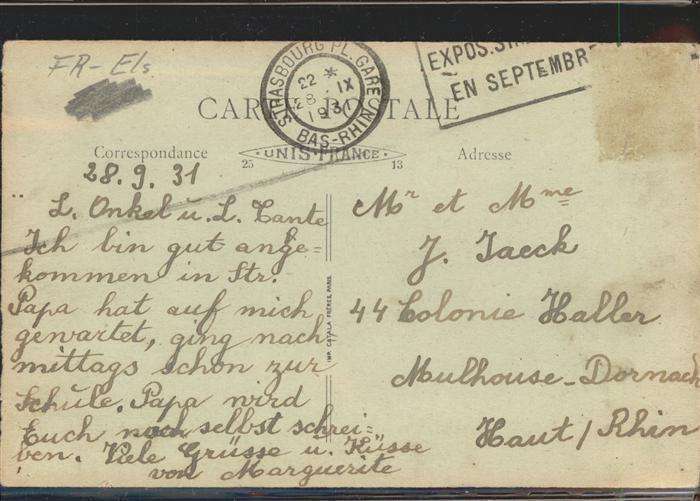 FR-Els
STRASBOURG PL. GARE
22 * IX
28
1931
BAS-RHIN
EXPOS.
EN SEPTEMBR
CARTE POSTALE
Correspondance
25 UNIS-FRANCE 13
Adresse
28.9.31
L. Onkel u. L. Tante
Ich bin gut ange=
kommen in Str.
Papa hat auf mich
gewartet, ging nach
mittags schon zur
Schule. Papa wird
Euch noch selbst schrei=
ben. Viele Grüsse u. Küsse
von Marguerite
IMP. CATALA FRÈRES, PARIS
Mr et Mme
J. Jaeck
44 Colonie Haller
Mulhouse-Dornach
Haut/Rhin